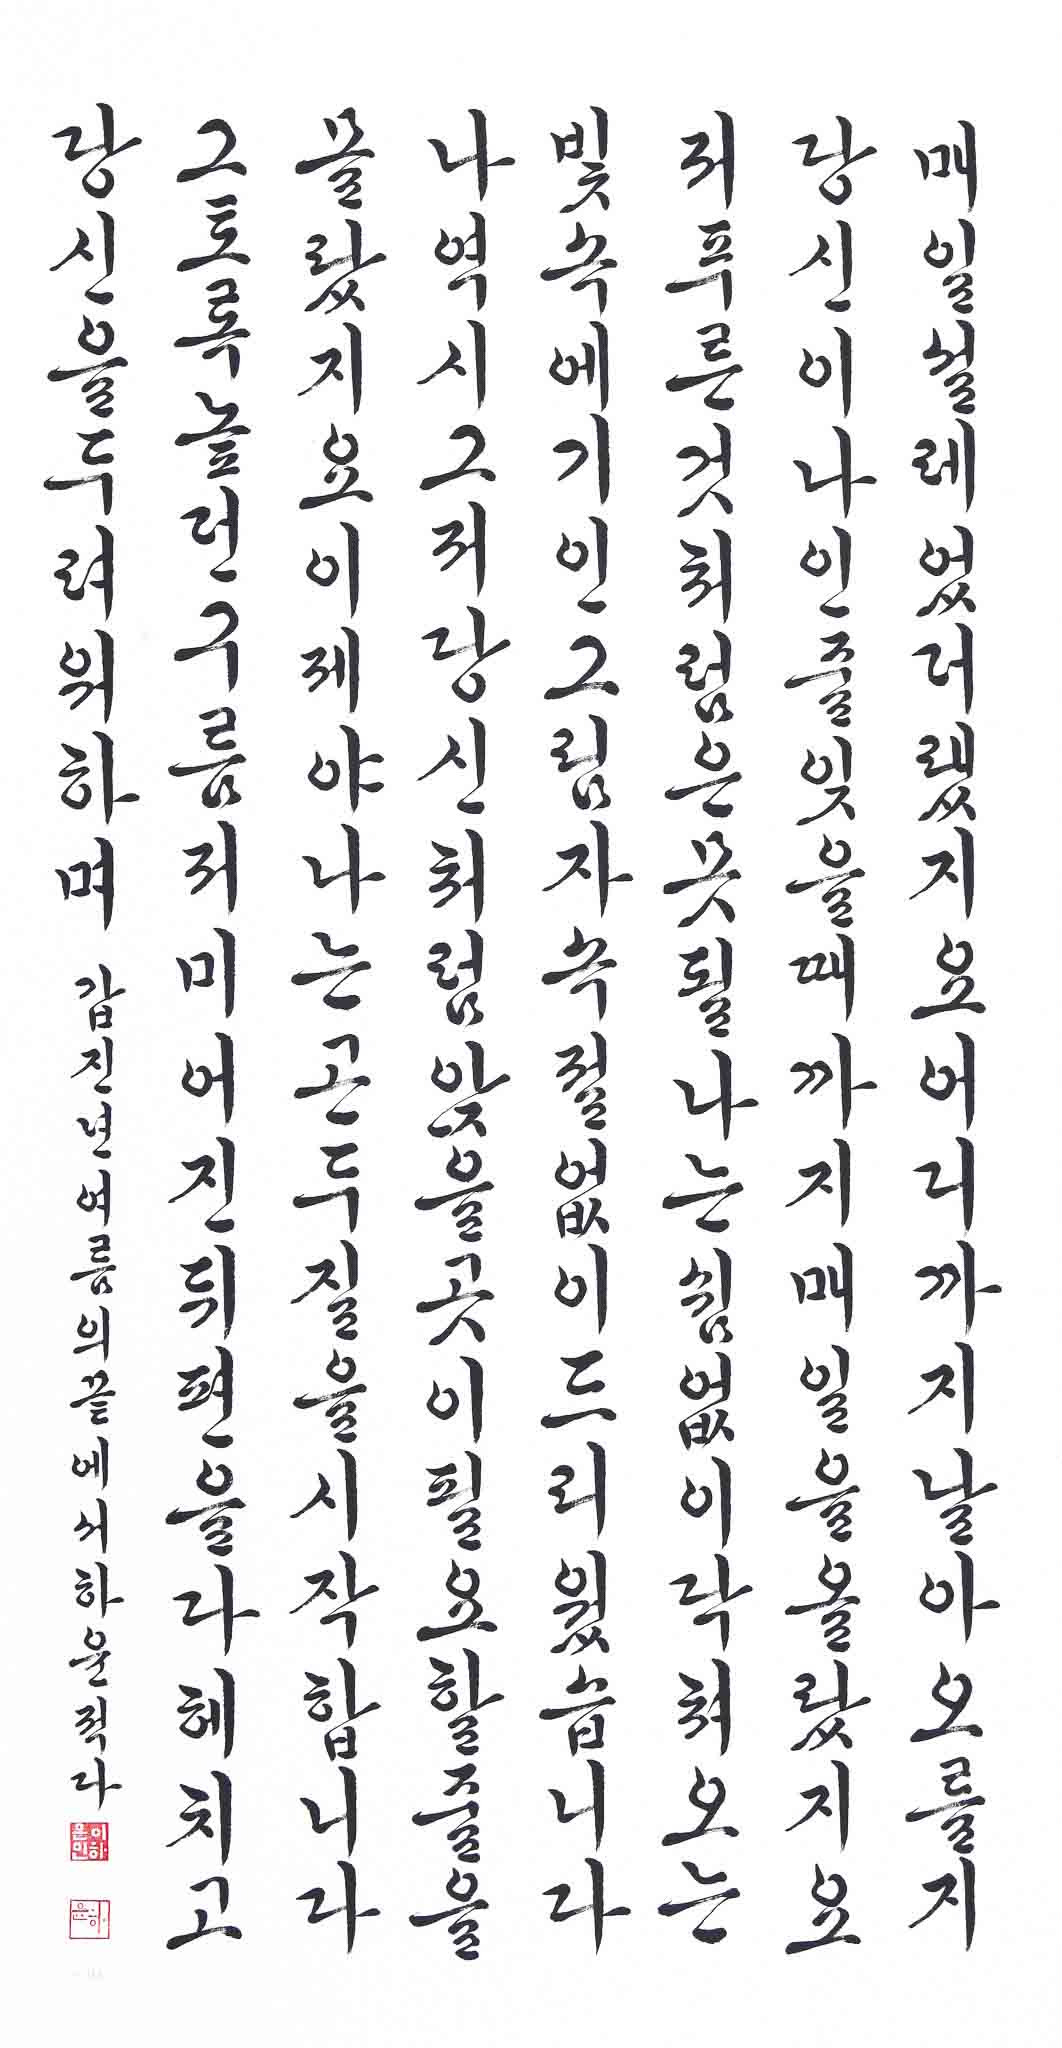 매일설레었더랬지요어디까지날아오를지
당신이나인줄잊을때까지매일을올랐지요
저푸른것처럼은못될나는쉼없이닥쳐오는
빛속에기인그림자속절없이드리웠습니다
나역시그저당신처럼앉을곳이필요할줄을
몰랐지요이제야나는곤두질을시작합니다
그토록높던구름저미어진뒤편을다헤치고
당신을두려워하며 갑진년여름의끝에서하윤적다
이하윤인
하윤